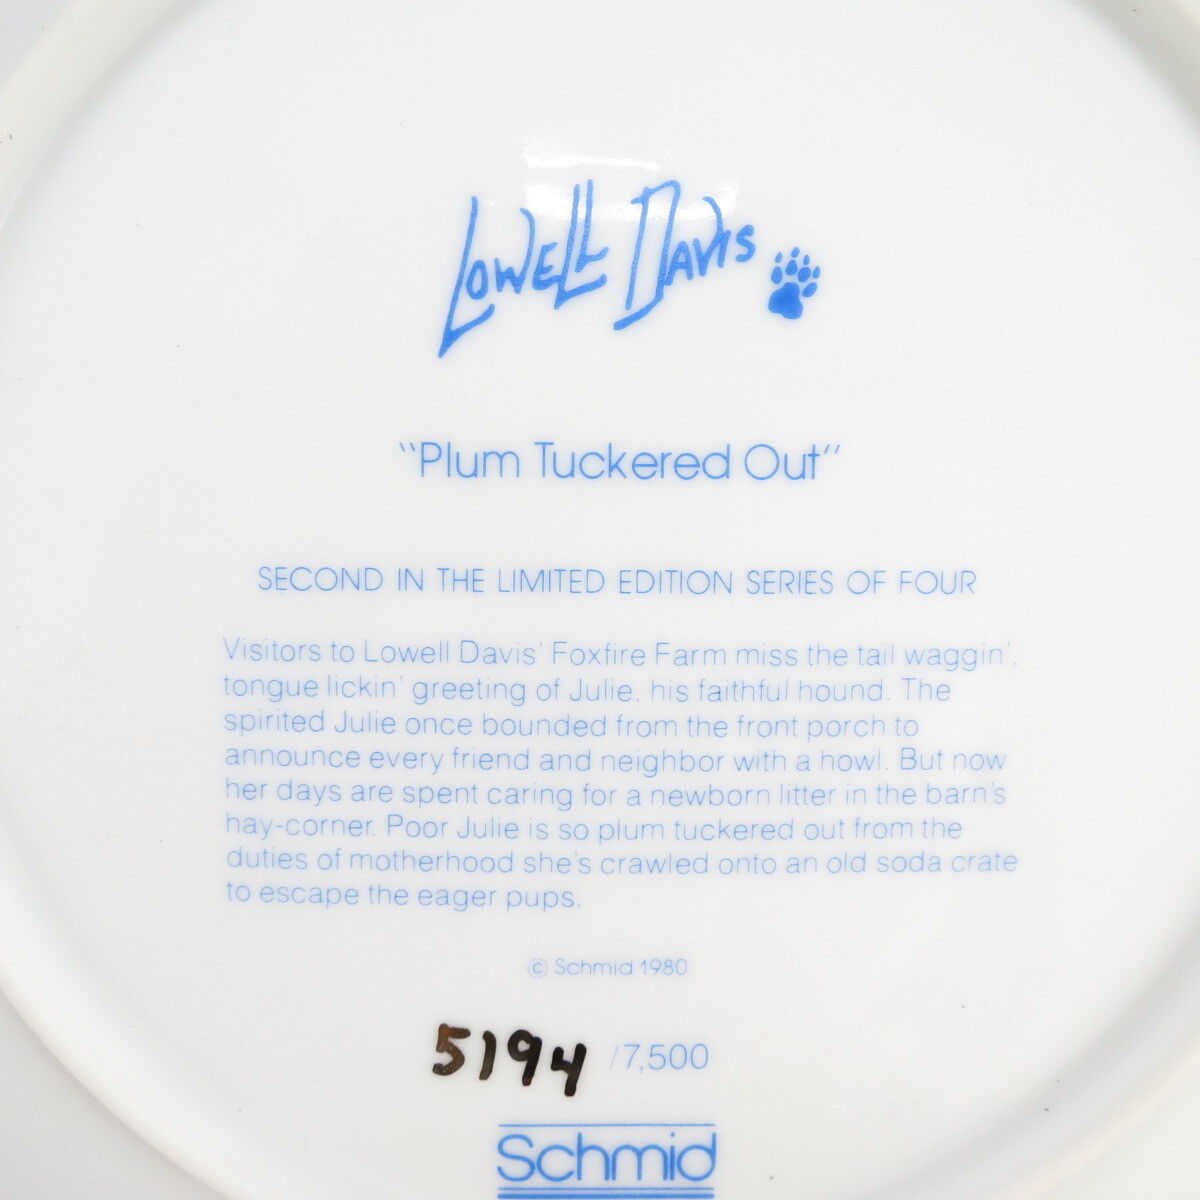 Lowell Davis
"Plum Tuckered Out"
SECOND IN THE LIMITED EDITION SERIES OF FOUR
Visitors to Lowell Davis' Foxfire Farm miss the tail waggin',
tongue lickin' greeting of Julie, his faithful hound. The
spirited Julie once bounded from the front porch to
announce every friend and neighbor with a howl. But now
her days are spent caring for a newborn litter in the barn's
hay-corner. Poor Julie is so plum tuckered out from the
duties of motherhood she's crawled onto an old soda crate
to escape the eager pups.
© Schmid 1980
5194 /7,500
Schmid